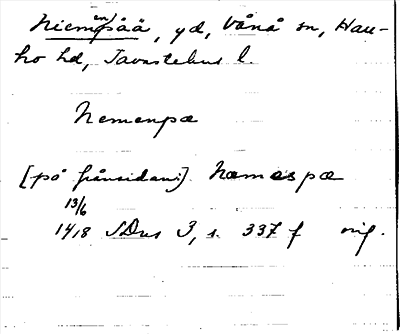 Niemenpää, yd, Vånå sn, Hau-
ho hd, Tavastehus l.
Nemenpæ
[på frånsidan:] Næmespæ
13/6
1418 SDns 3, s. 337 f orig.